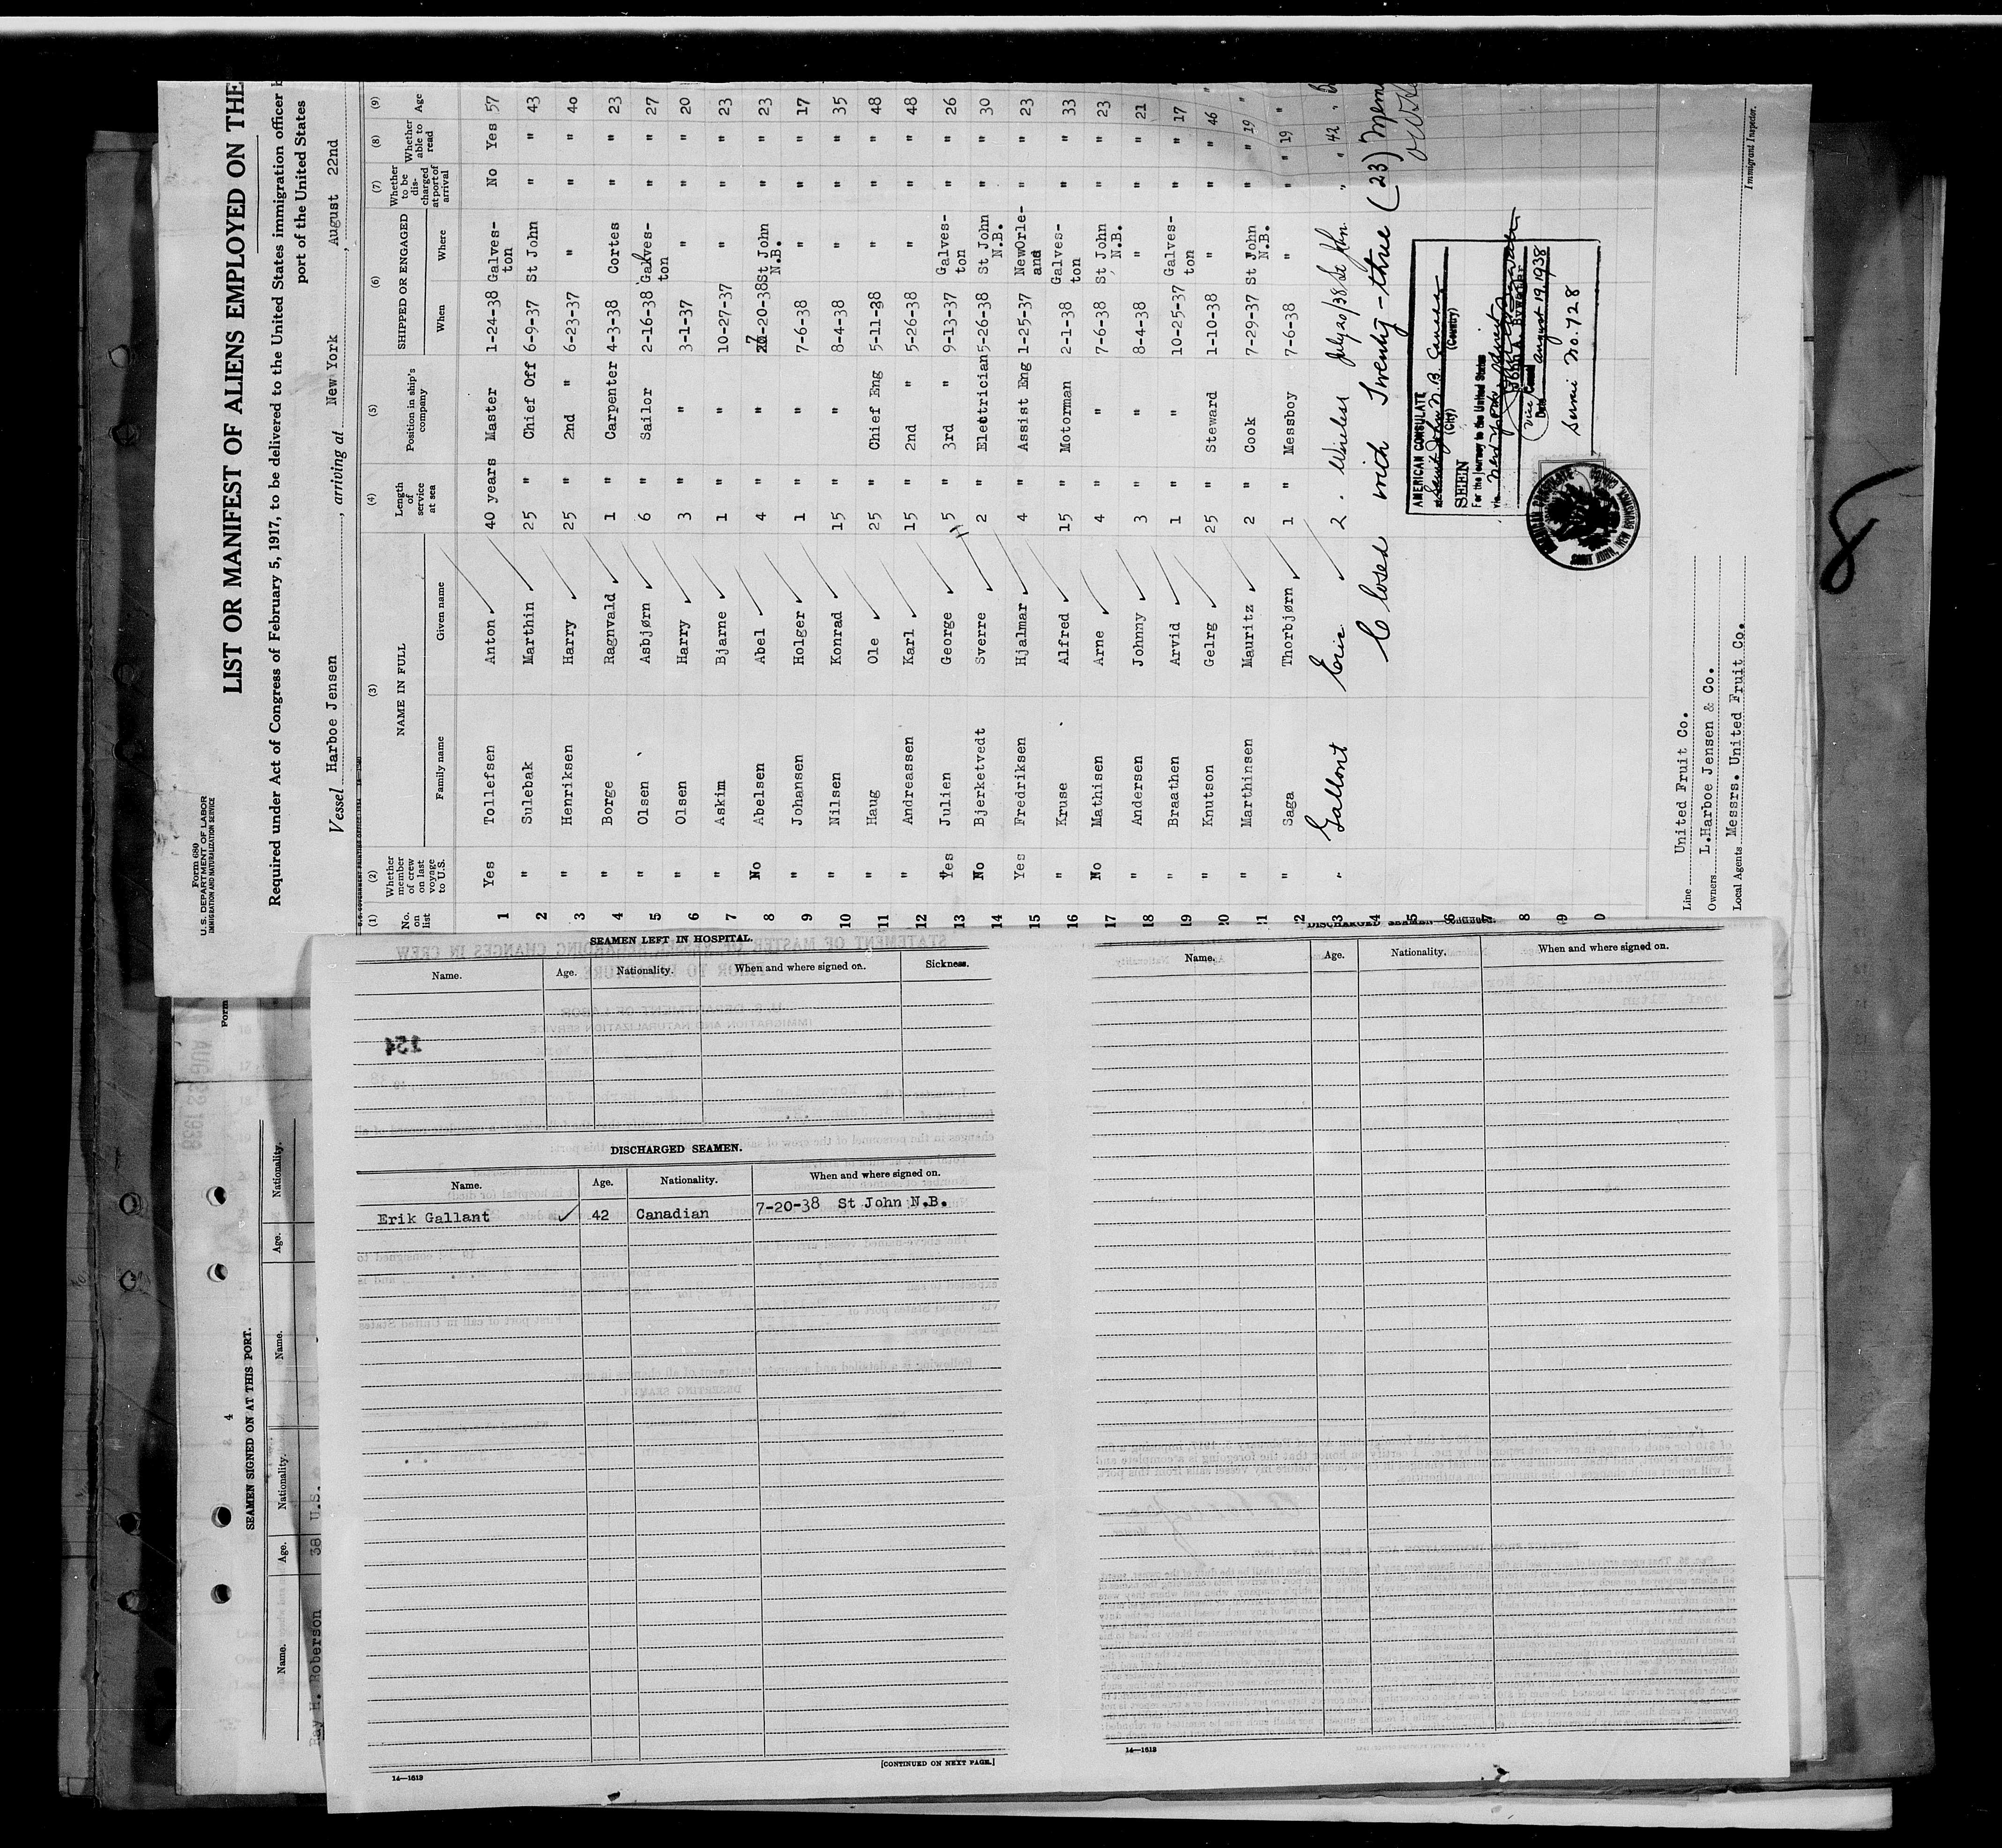 Form 680
U. S. DEPARTMENT OF LABOR
IMMIGRATION AND NATURALIZATION SERVICE
LIST OR MANIFEST OF ALIENS EMPLOYED ON THE
Required under Act of Congress of February 5, 1917, to be delivered to the United States immigration officer
port of the United States
Vessel Harboe Jensen, arriving at New York, August 22nd
(1) (2) (3) (4) (5) (6) (7) (8) (9)
No. on list Whether member of crew on last voyage to U.S. NAME IN FULL Length of service at sea Position in ship's company SHIPPED OR ENGAGED Whether to be dis-charged at port of arrival Whether able to read Age
Family name Given name When Where
1 Yes Tollefsen Anton 40 years Master 1-24-38 Galves-ton No Yes 57
2 " Sulebak Marthin 25 " Chief Off 6-9-37 St John " " 43
3 " Henriksen Harry 25 " 2nd " 6-23-37 " " " 40
4 " Borge Ragnvald 1 " Carpenter 4-3-38 Cortes " " 23
5 " Olsen Asbjørn 6 " Sailor 2-16-38 Galves-ton " " 27
6 " Olsen Harry 3 " " 3-1-37 " " " 20
7 " Askim Bjarne 1 " " 10-27-37 " " " 23
8 No Abelsen Abel 4 " " 7-20-38 St John N.B. " " 23
9 " Johansen Holger 1 " " 7-6-38 " " " 17
10 " Nilsen Konrad 15 " " 8-4-38 " " " 35
11 " Haug Ole 25 " Chief Eng 5-11-38 " " " 48
12 " Andreassen Karl 15 " 2nd " 5-26-38 " " " 48
13 Yes Julien George 5 " 3rd " 9-13-37 Galves-ton " " 26
14 No Bjerketvedt Sverre 2 " Electrician 5-26-38 St John N.B. " " 30
15 Yes Fredriksen Hjalmar 4 " Assist Eng 1-25-37 NewOrle-and " " 23
16 " Kruse Alfred 15 " Motorman 2-1-38 Galves-ton " " 33
17 No Mathisen Arne 4 " " 7-6-38 St John N.B. " " 23
18 " Andersen Johnny 3 " " 8-4-38 " " " 21
19 " Braathen Arvid 1 " " 10-25-37 Galves-ton " " 17
20 " Knutson Gelrg 25 " Steward 1-10-38 " " " 46 "
21 " Marthinsen Mauritz 2 " Cook 7-29-37 St John N.B. " " 19 "
22 " Saga Thorbjørn 1 " Messboy 7-6-38 " " " 19 "
23 " Gallont Eric 2 . Wireless July 20/38 St John. " " 42
24 Closed with Twenty-three (23) Mem
25
26
AMERICAN CONSULATE
at Saint John N.B. Canada
(City) (Country)
SEEN
For the journey to the United States
via
John A. Bywater
Vice Consul
Date August 19, 1938
Servic No. 728
Line United Fruit Co.
Owners L.Harboe Jensen & Co.
Local Agents Messrs. United Fruit Co.
Immigrant Inspector.
8
SEAMEN LEFT IN HOSPITAL.
Name. Age. Nationality. When and where signed on. Sickness.
DISCHARGED SEAMEN.
Name. Age. Nationality. When and where signed on.
Erik Gallant 42 Canadian 7-20-38 St John N.B.
[CONTINUED ON NEXT PAGE.]
14—1613
DISCHARGED SEAMEN—Continued.
Name. Age. Nationality. When and where signed on.
14—1613
Form
4
SEAMEN SIGNED ON AT THIS PORT.
Name. Age. Nationality. Name. Age. Nationality.
Ray H. Roberson 38 U.S.